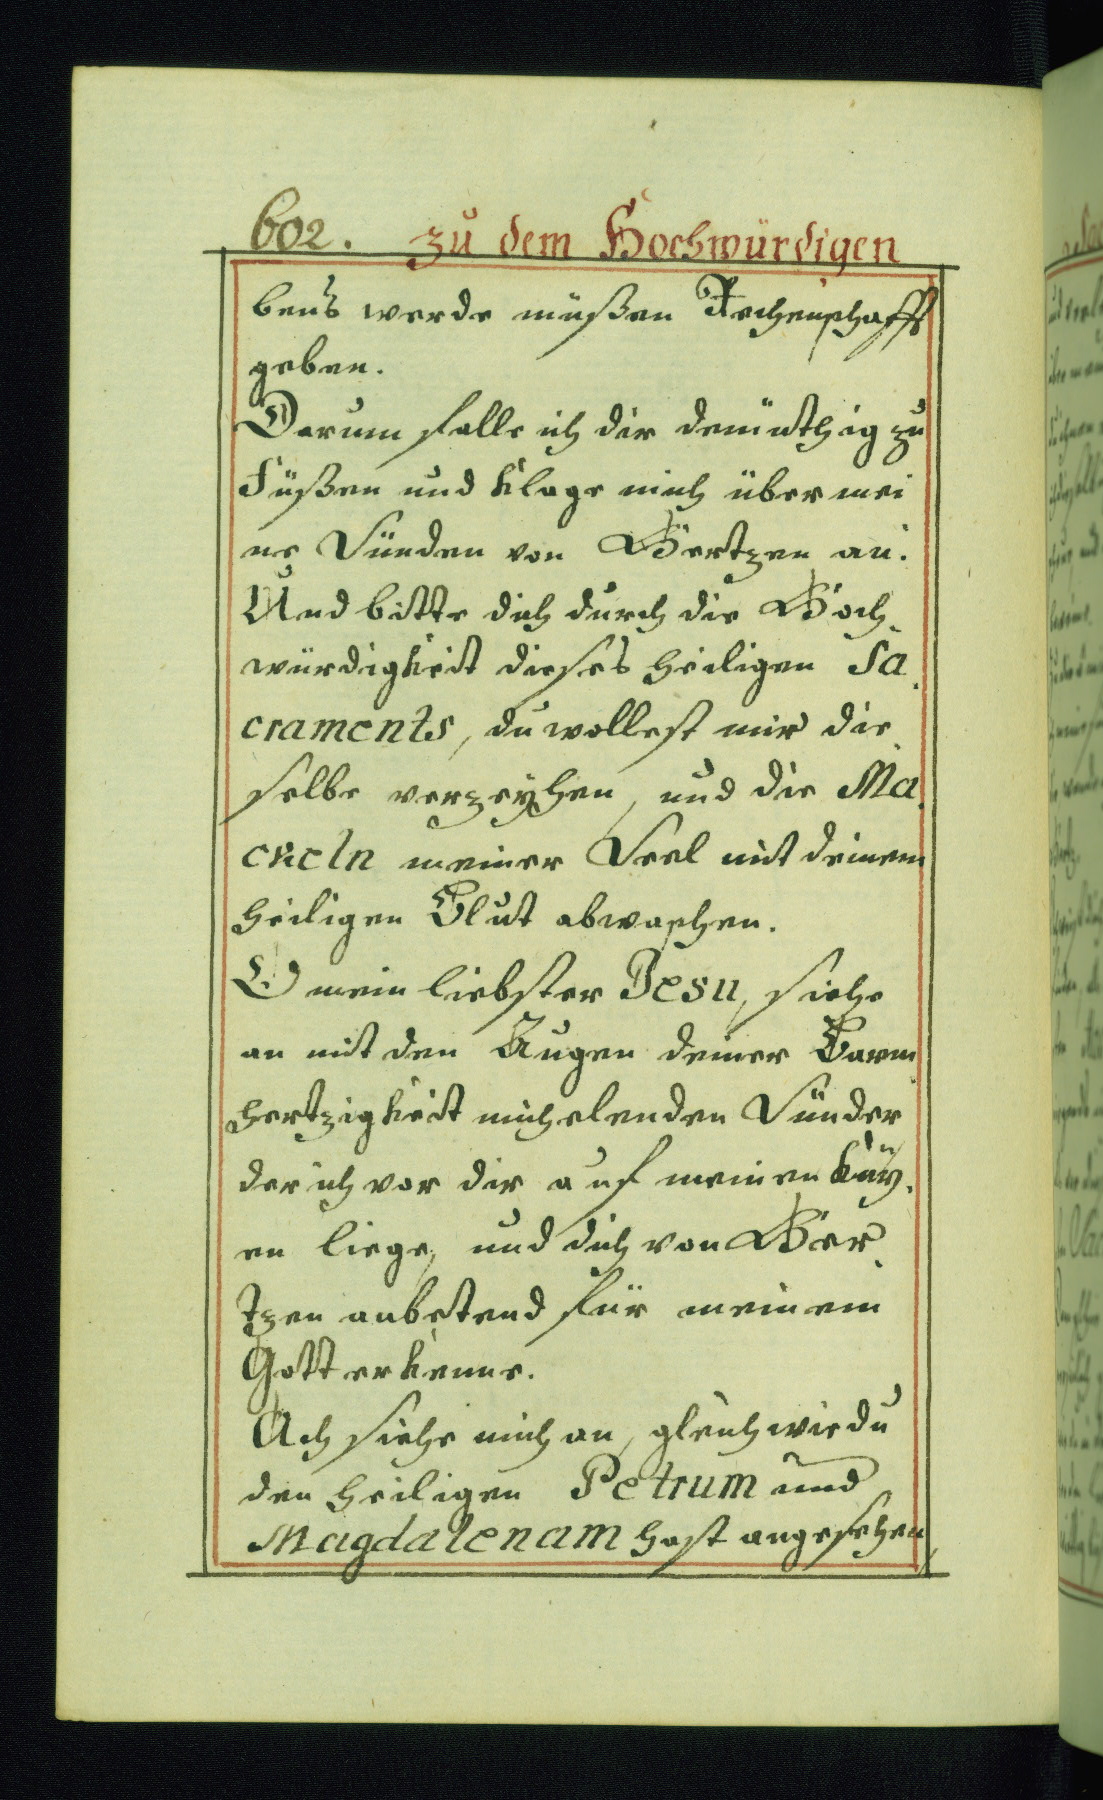 602. zu dem Hochwürdigen
bens werde müßen Rechenschafft
geben.
Darum falle ich dir demüthig zu
Füßen und klage mich über mei
ne Sünden von Hertzen an.
Und bitte dich durch die Hoch,
würdigkeit dieses heiligen Sa,
craments, du wollest mir die,
selbe verzeyhen, und die Ma,
ckeln meiner Seel mit deinem
heiligen Blut abwaschen.
O mein liebster Jesu, siehe
an mit den Augen deiner Barm,
hertzigkeit mich elenden Sünder
der ich vor dir auf meinen Kny,
en liege, und dich von Her,
tzen anbetend für meinem
Gott erkenne.
Ach siehe mich an, gleich wie du
den heiligen Petrum und
Magdalenam hast angesehen,